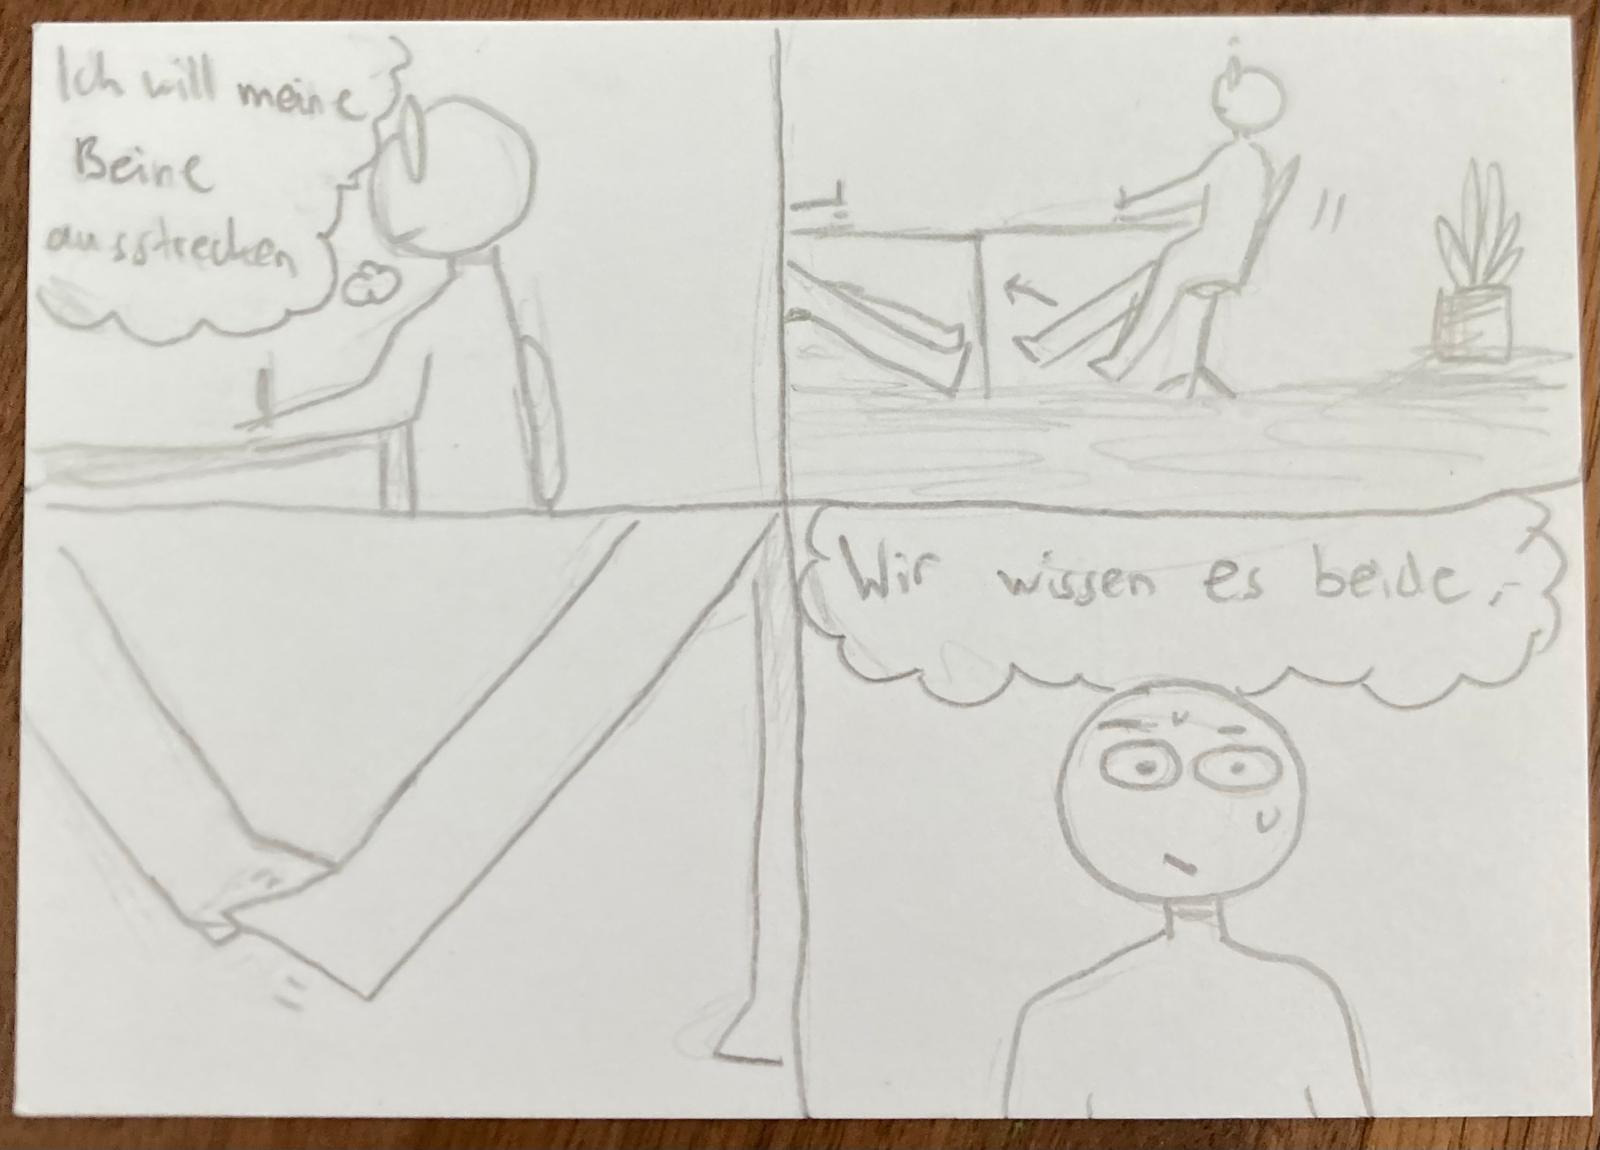 Ich will meine
Beine
ausstrecken
Wir wissen es beide,-